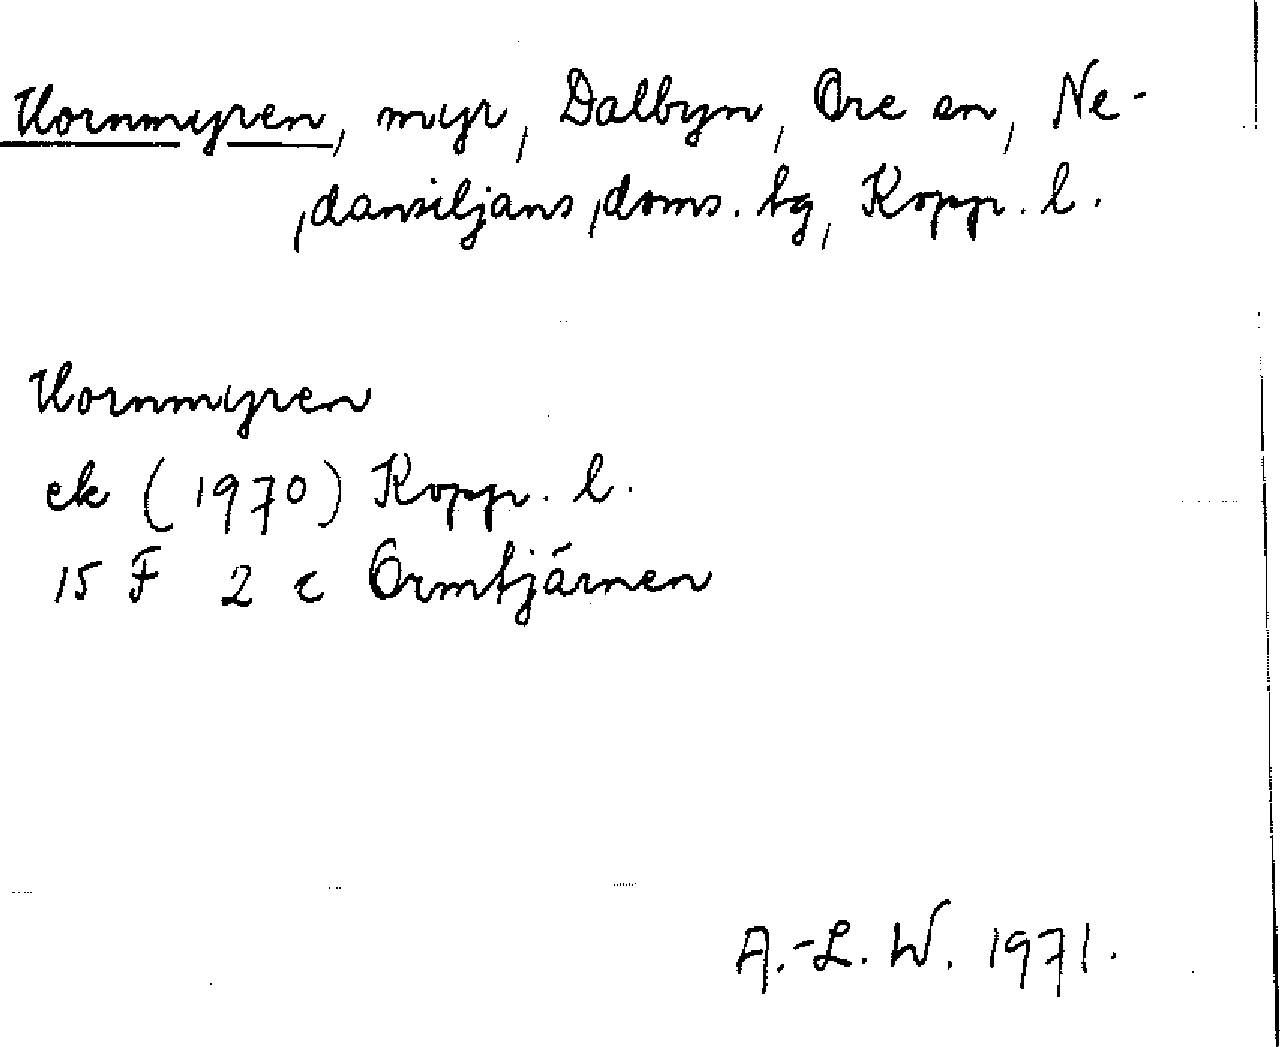 Hornmyren, myr, Dalbyn, Ore sn, Ne-
dansiljans doms. tg, Kopp. l.
Hornmyren
ek (1970) Kopp. l.
15 F 2 c Ormtjärnen
A.-L. W. 1971.